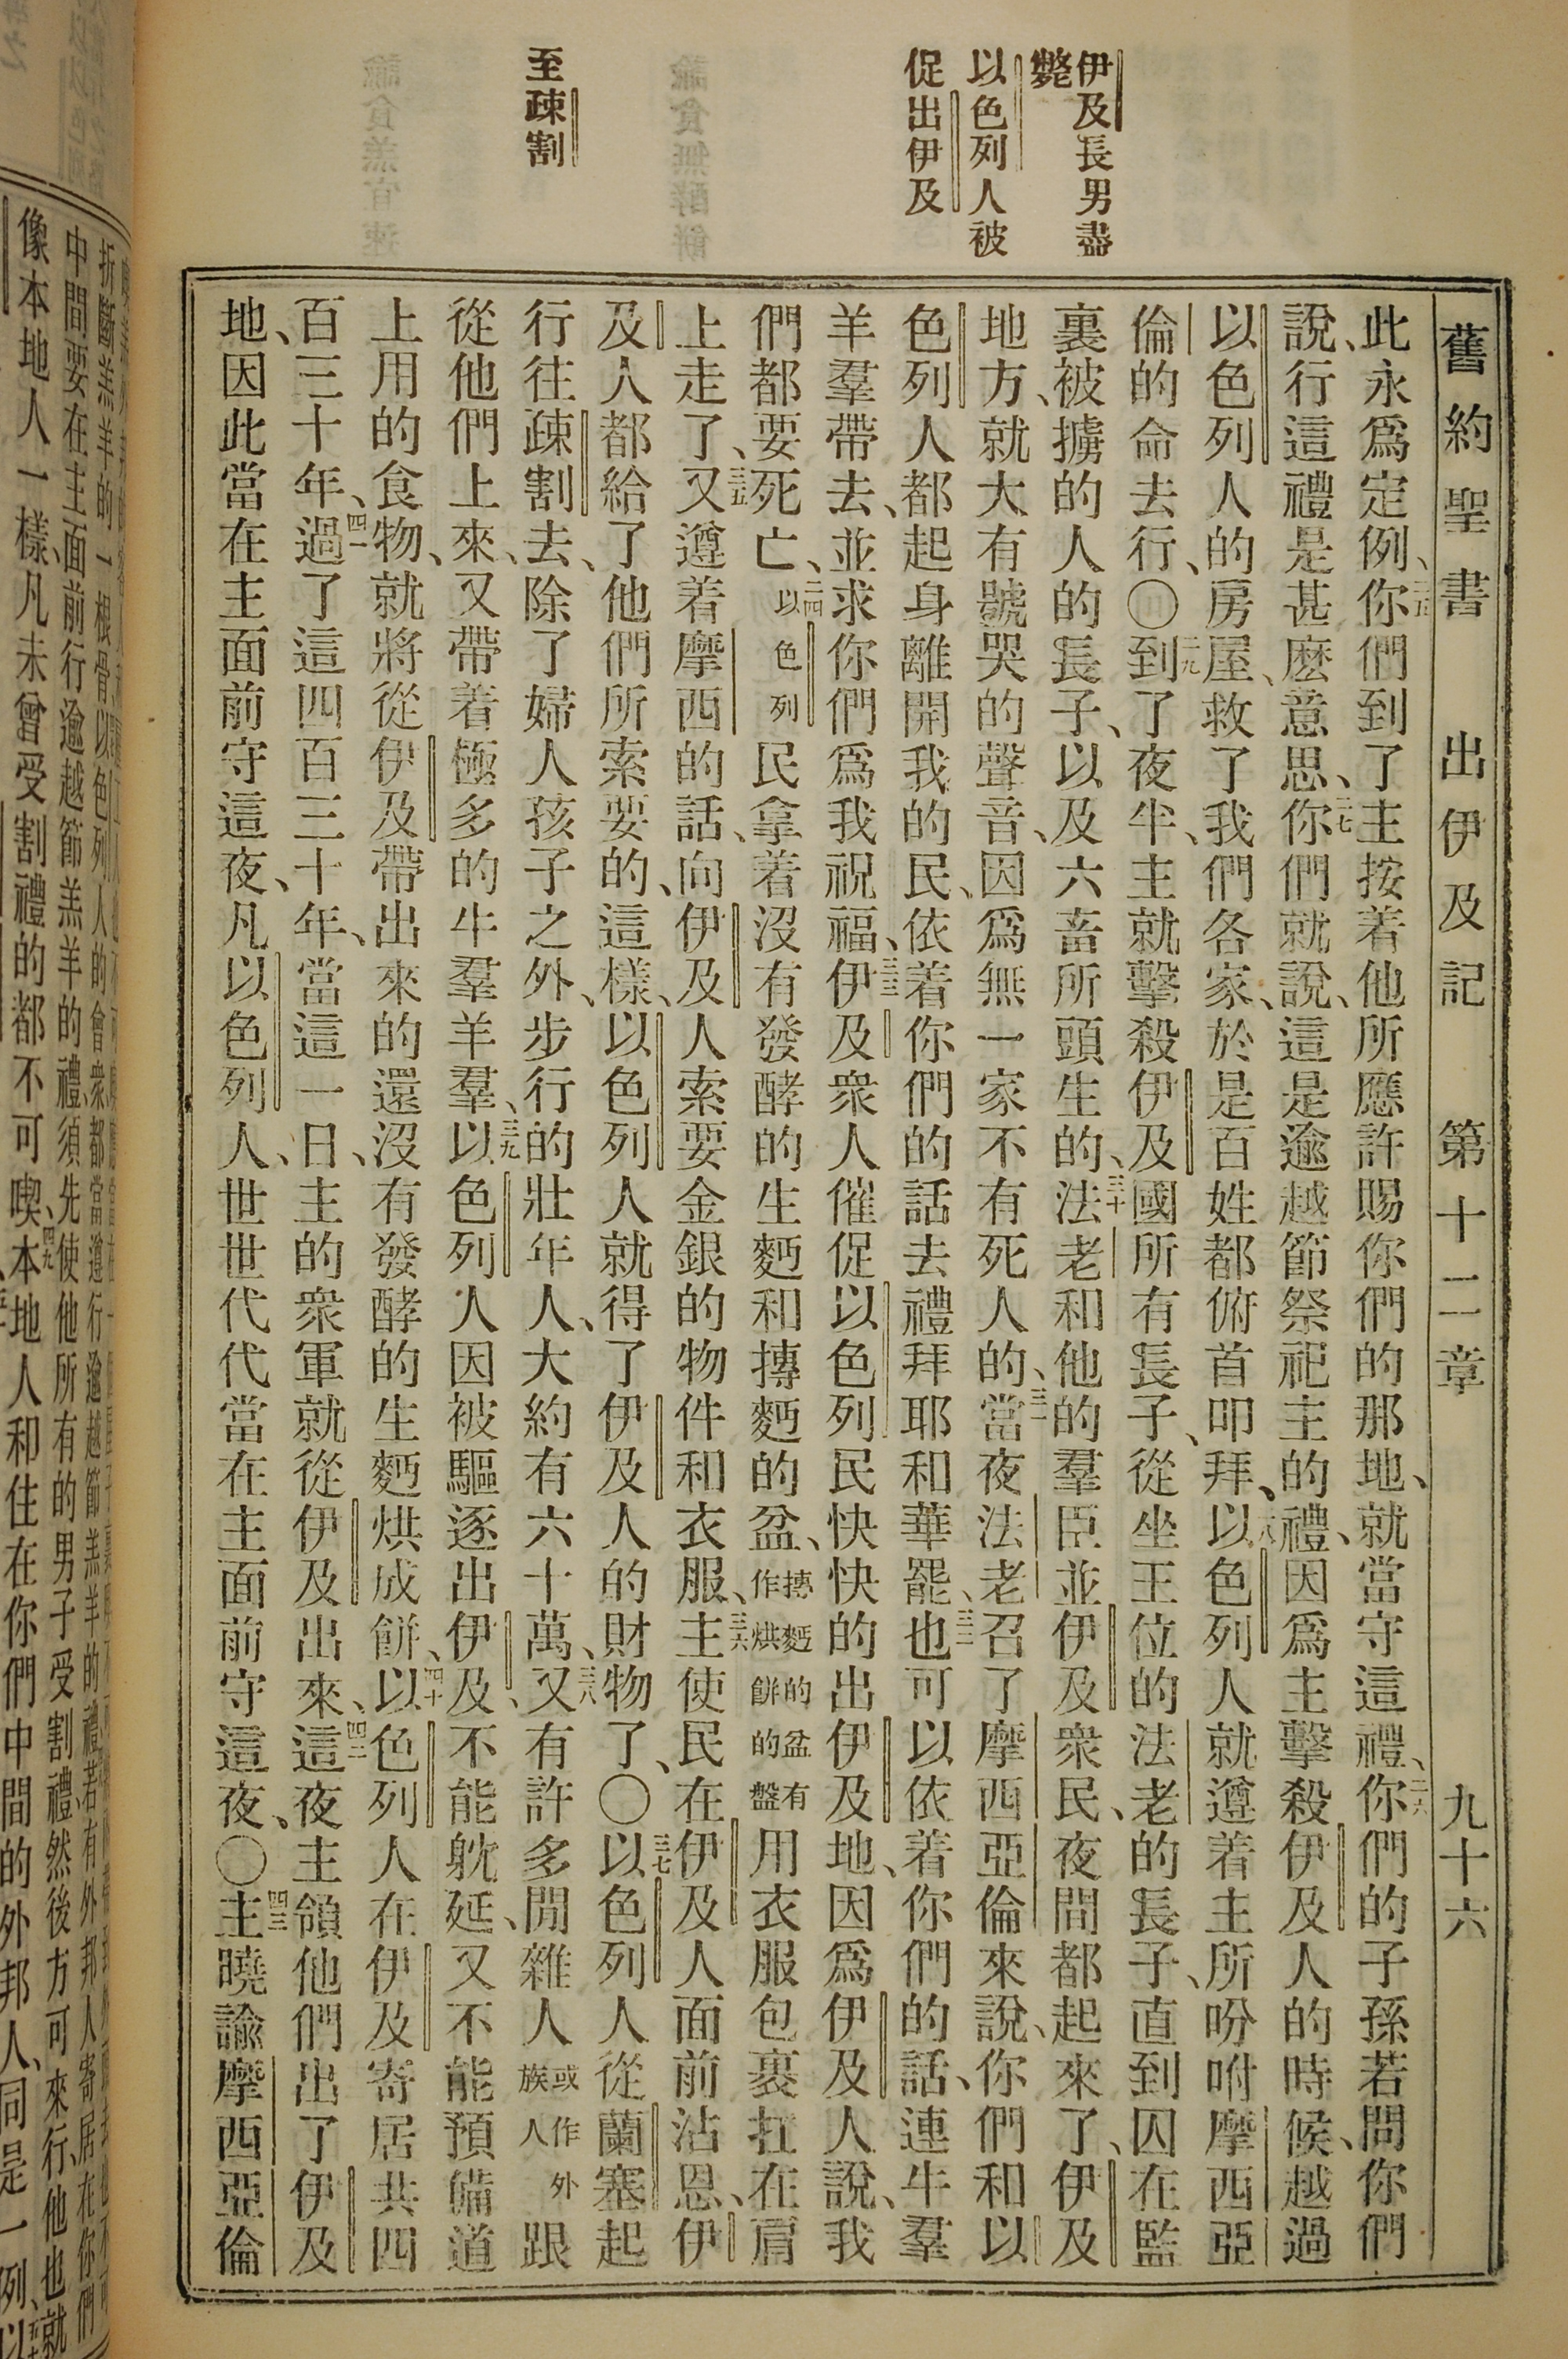 舊約聖書 出伊及記 第十二章 九十六
伊及長男盡
斃
以色列人被
促出伊及
至疎割
此永爲定例、二五你們到了主按着他所應許賜你們的那地、就當守這禮、二六你們的子孫若問你們
說、行這禮是甚麽意思、二七你們就說、這是逾越節祭祀主的禮、因爲主擊殺伊及人的時候、越過
以色列人的房屋、救了我們各家、於是百姓都俯首叩拜、二八以色列人就遵着主所吩咐摩西亞
倫的命去行、〇二九到了夜半、主就擊殺伊及國所有長子、從坐王位的法老的長子、直到囚在監
裏被擄的人的長子、以及六畜所頭生的、三十法老和他的羣臣並伊及衆民、夜間都起來了、伊及
地方、就大有號哭的聲音、因爲無一家不有死人的、三一當夜法老召了摩西亞倫來說、你們和以
色列人都起身離開我的民、依着你們的話去禮拜耶和華罷、三二也可以依着你們的話、連牛羣
羊羣帶去、並求你們爲我祝福、三三伊及衆人催促以色列民快快的出伊及地、因爲伊及人說、我
們都要死亡、三四以色列民拿着沒有發酵的生麪和摶麪的盆、摶麪的盆有作烘餅的盤用衣服包裹扛在肩
上走了、三五又遵着摩西的話、向伊及人索要金銀的物件和衣服、三六主使民在伊及人面前沾恩、伊
及人都給了他們所索要的、這樣、以色列人就得了伊及人的財物了、〇三七以色列人從蘭塞起
行往疎割去、除了婦人孩子之外、步行的壯年人、大約有六十萬、三八又有許多閒雜人或作外族人跟
從他們上來、又帶着極多的牛羣羊羣、三九以色列人因被驅逐出伊及、不能躭延、又不能預備道
上用的食物、就將從伊及帶出來的還沒有發酵的生麪烘成餅、四十以色列人在伊及寄居共四
百三十年、四一過了這四百三十年、當這一日、主的衆軍就從伊及出來、四二這夜主領他們出了伊及
地、因此當在主面前守這夜、凡以色列人、世世代代當在主面前守這夜、〇四三主曉諭摩西亞倫
中間要在主面前行逾越節羔羊的禮、須先使他所有的男子受割禮、然後方可來行、他也就
像本地人一樣、凡未曾受割禮的都不可喫、四九本地人和住在你們中間的外邦人、同是一例、